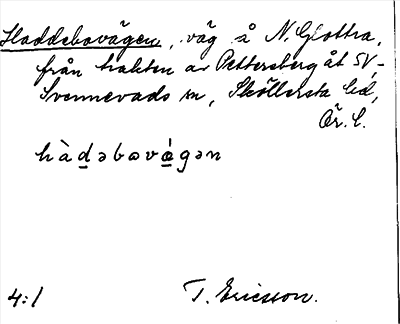 Haddebovägen, väg å N. Glottra,
från trakten av Pettersberg åt SV,
Svennevads sn, Sköllersta hd,
Ör. l.
hàdəbωvǽgən
4:1 T. Ericsson.